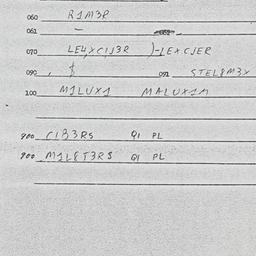 060 R1M3R
061 -
070 LE4XC1J3R )-LEXCJER
090 , $ 091 STEL8M3X
100 M1LUX1 MALUX1M
900 C1B3RS Q1 PL
900 M1L8T3RS Q1 PL